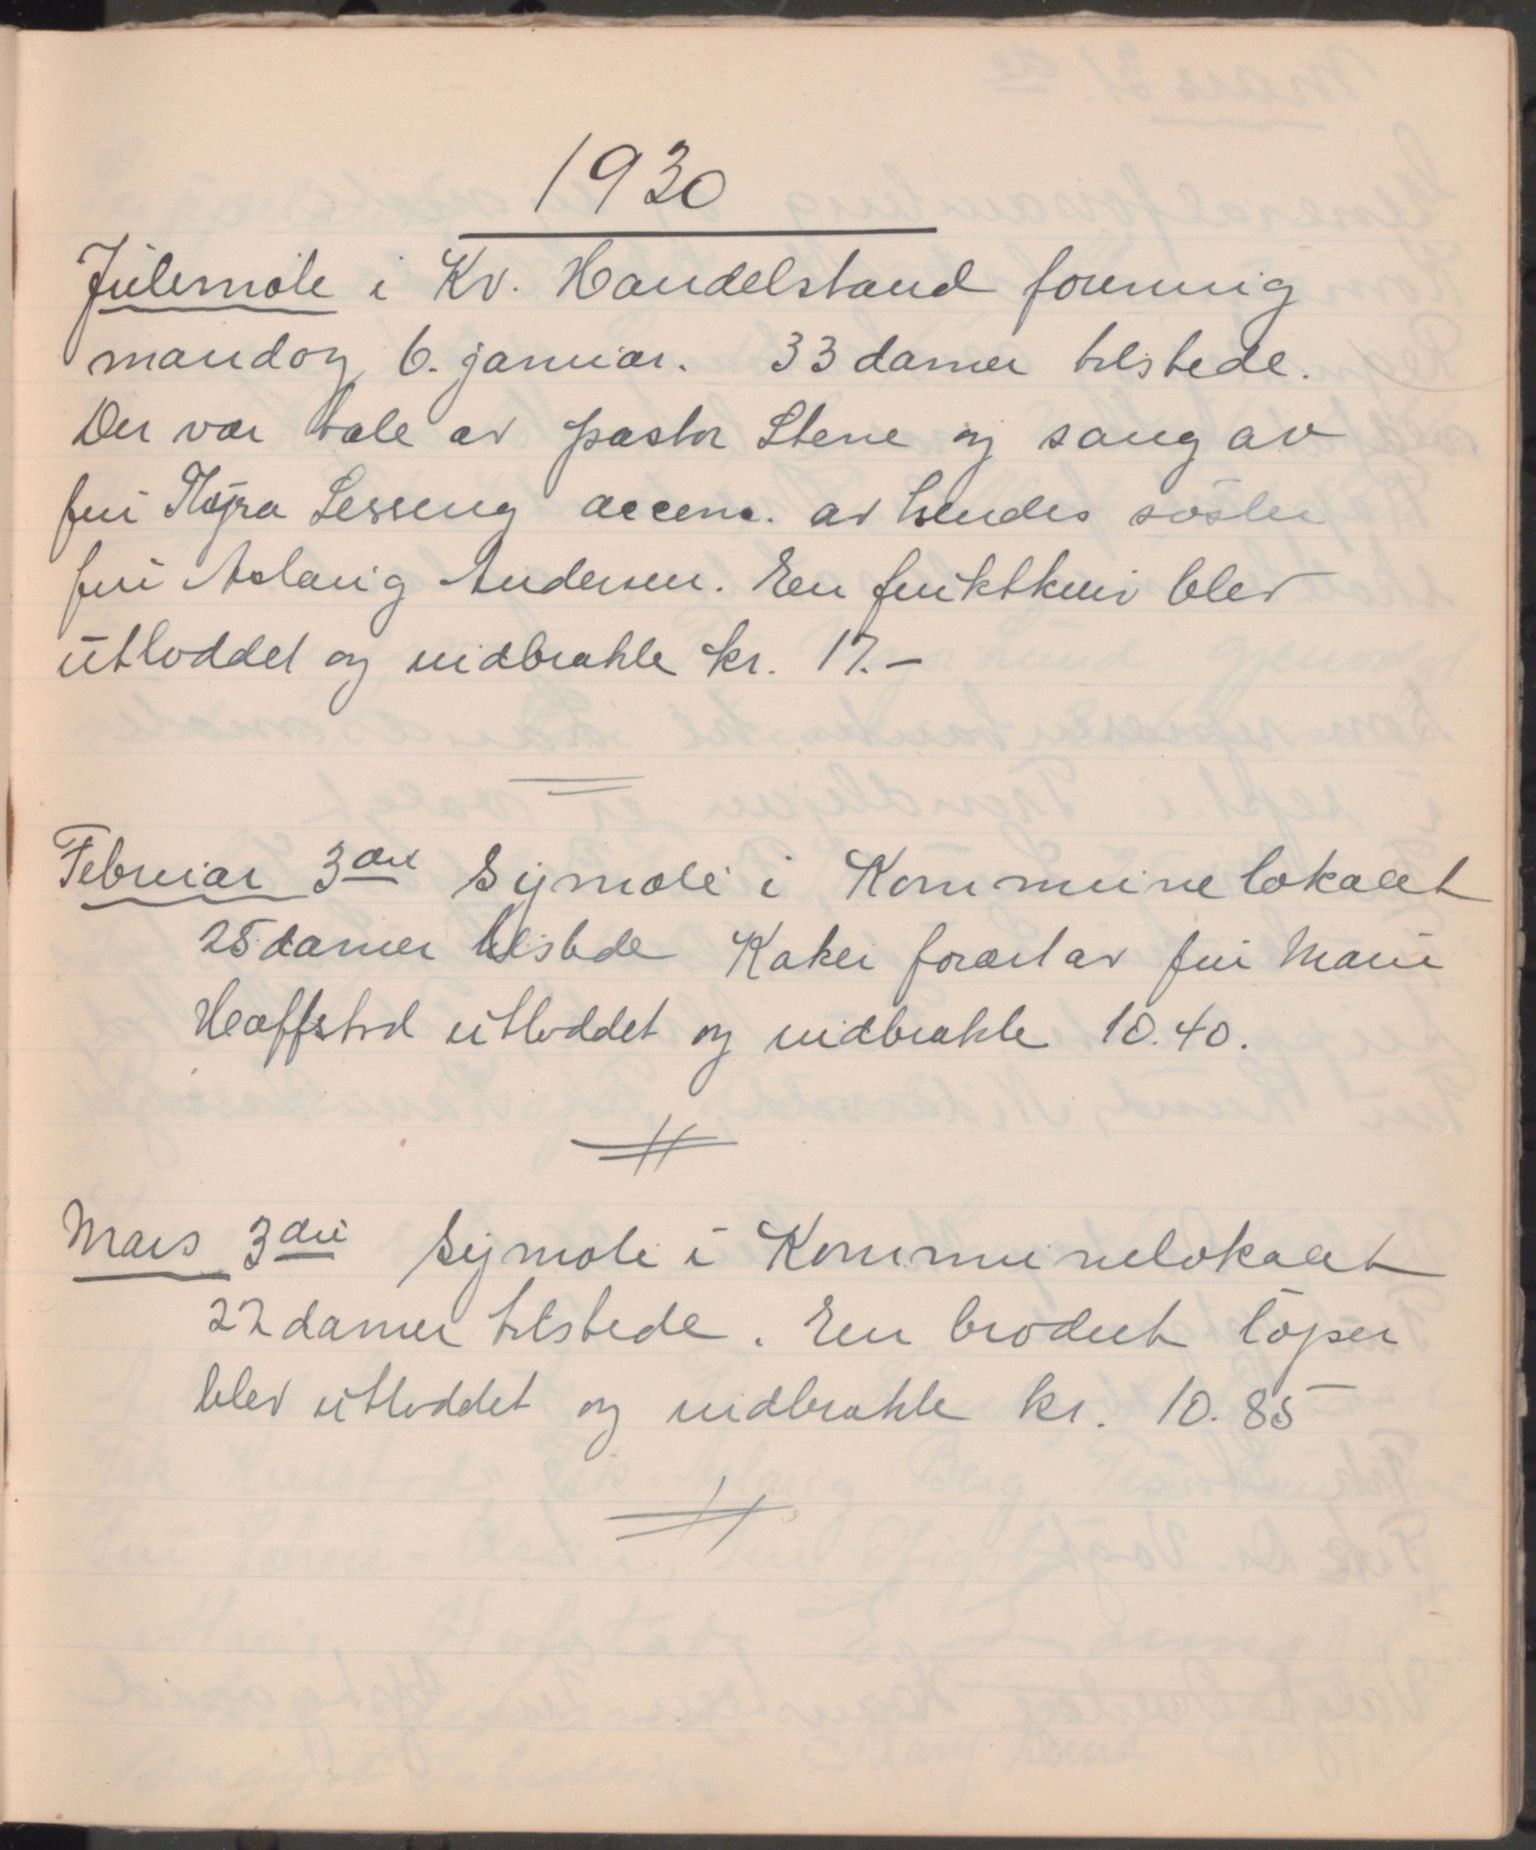 1930
Julemøte i Kv. Handelstand forening
mandag 6. januar. 33 damer tilstede.
Der var tale av pastor Stene og sang av
fru Lesseng accom. av hendes søster
fru Aslaug Andersen. En fruktkurv blev
utloddet og indbrakte kr. 17.-
Februar 3die Symøte i Kommunelokalet
25 damer tilstede Kaker forært av fru Marie
utloddet og indbrakte 10.40.
Mars 3die Symøte i Kommunelokalet
22 damer tilstede. En brodert løper
blev utloddet og indbrakte kr. 10.85